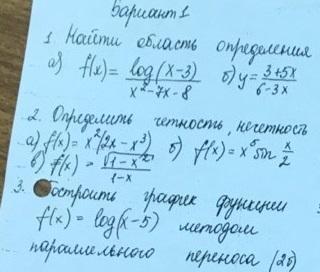 Вариант 1
1. Найти область определения
а) f(x) = log(x-3) / x²-7x-8 б) y = 3+5x / 6-3x
2. Определить четность, нечетность
а) f(x) = x²(2x-x³) б) f(x) = x⁵ sin x/2
в) f(x) = √1-x² / 1-x
3. Построить график функции
f(x) = log(x-5) методом
параллельного переноса (2б)